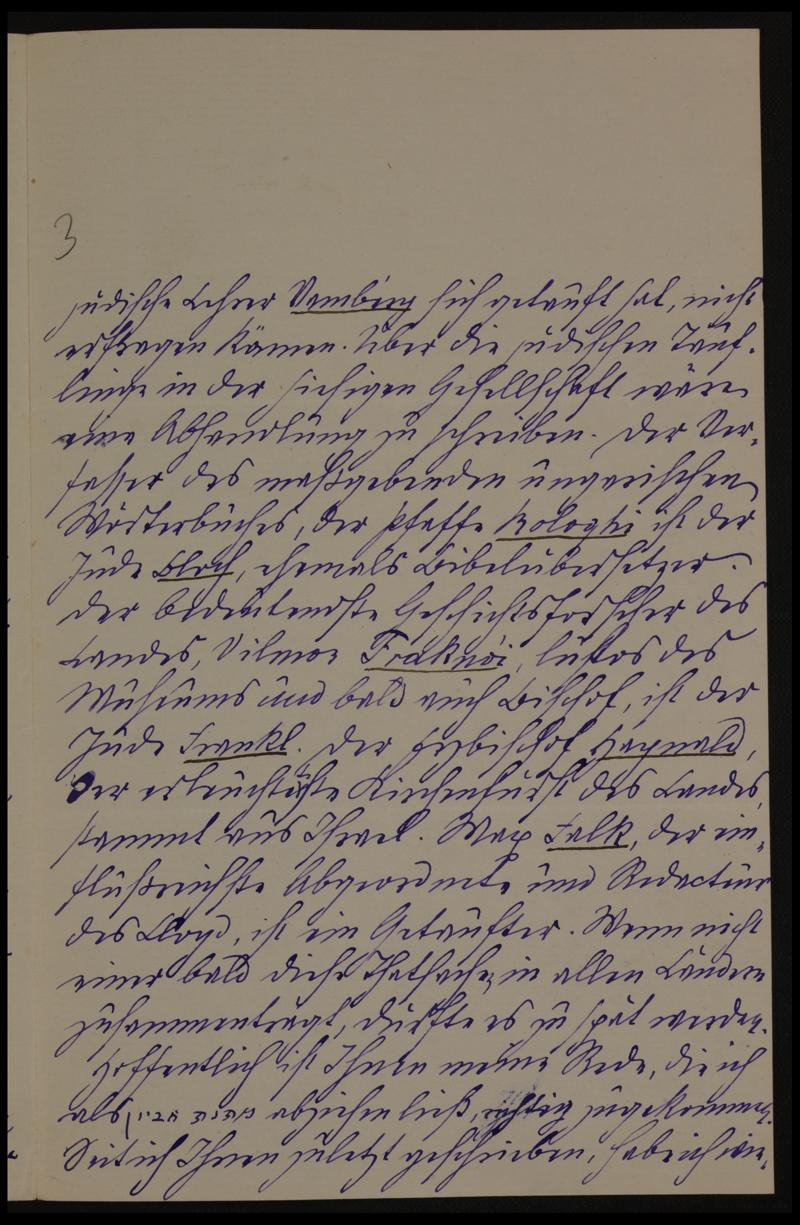 3
jüdische Lehrer Vambéry sich getauft hat, nicht
erfragen können. Über die jüdischen Täuf-
linge in der hiesigen Gesellschaft wäre
eine Abhandlung zu schreiben. Der Ver-
fasser des maßgebenden ungarischen
Wörterbuches, der Pfaffe Ballagi ist der
Jude Bloch, ehemals Bibelübersetzer.
Der bedeutendste Geschichtsforscher des
Landes, Vilmos Fraknói, Custos des
Museums und bald auch Bischof, ist der
Jude Frankl. Der Erzbischof Haynald,
der erleuchtetste Kirchenfürst des Landes,
stammt aus Israel. Max Falk, der ein-
flußreichste Abgeordnete und Redacteur
des Lloyd, ist ein Getaufter. Wenn nicht
einer bald diese Thatsachen in allen Ländern
zusammenträgt, dürfte es zu spät werden.
Hoffentlich ist Ihnen meine Rede, die ich
als מתנות אביון abziehen ließ, richtig zugekommen.
Seit ich Ihnen zuletzt geschrieben, habe ich wie-